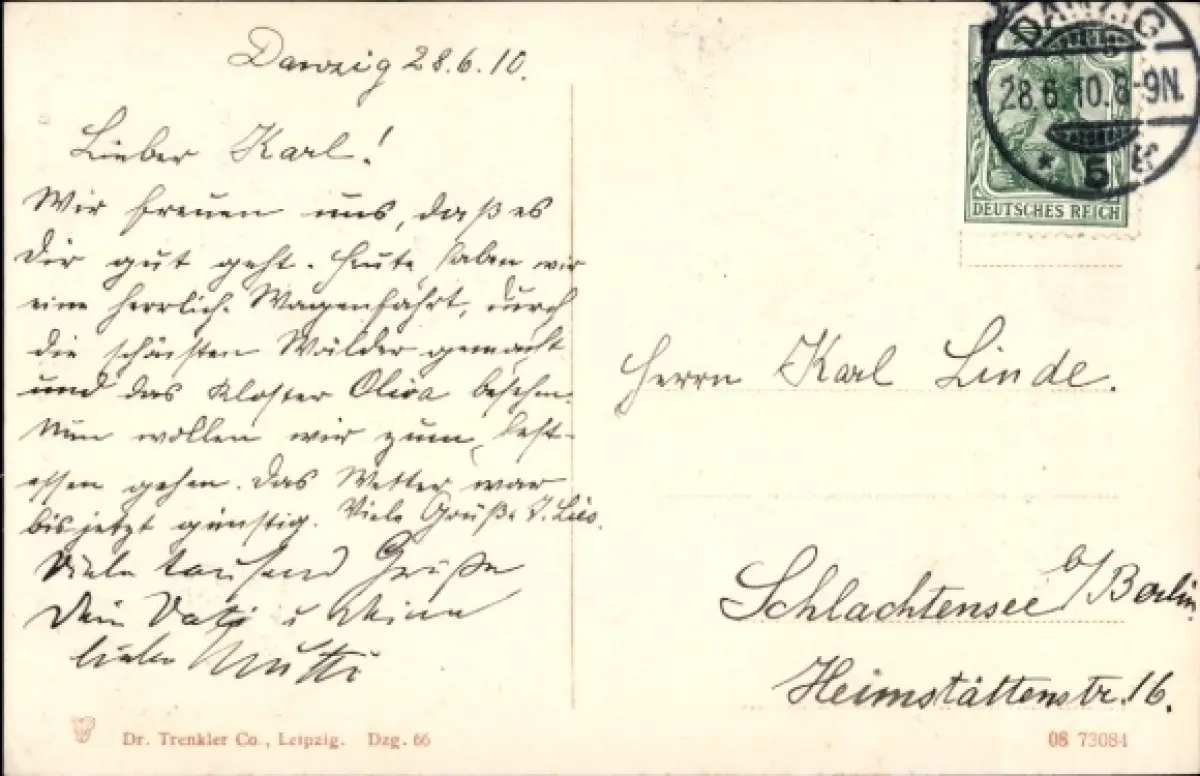 Danzig 28.6.10.
Lieber Karl!
Wir freuen uns, daß es
Dir gut geht. Heute haben wir
eine herrlich. Wagenfahrt, durch
die schönsten Wälder gemacht
und das Kloster Oliva besehen.
Nun wollen wir zum Fest-
essen gehen. Das Wetter war
bis jetzt günstig. Viele Grüße
Viele tausend Grüße
Dein Vati u Deine
liebe Mutti
DANZIG
28.6.10.8-9N.
* 5
DEUTSCHES REICH
Herrn Karl Linde.
Schlachtensee b/Berlin
Heimstättenstr. 16.
Dr. Trenkler Co., Leipzig. Dzg. 66
08 73084